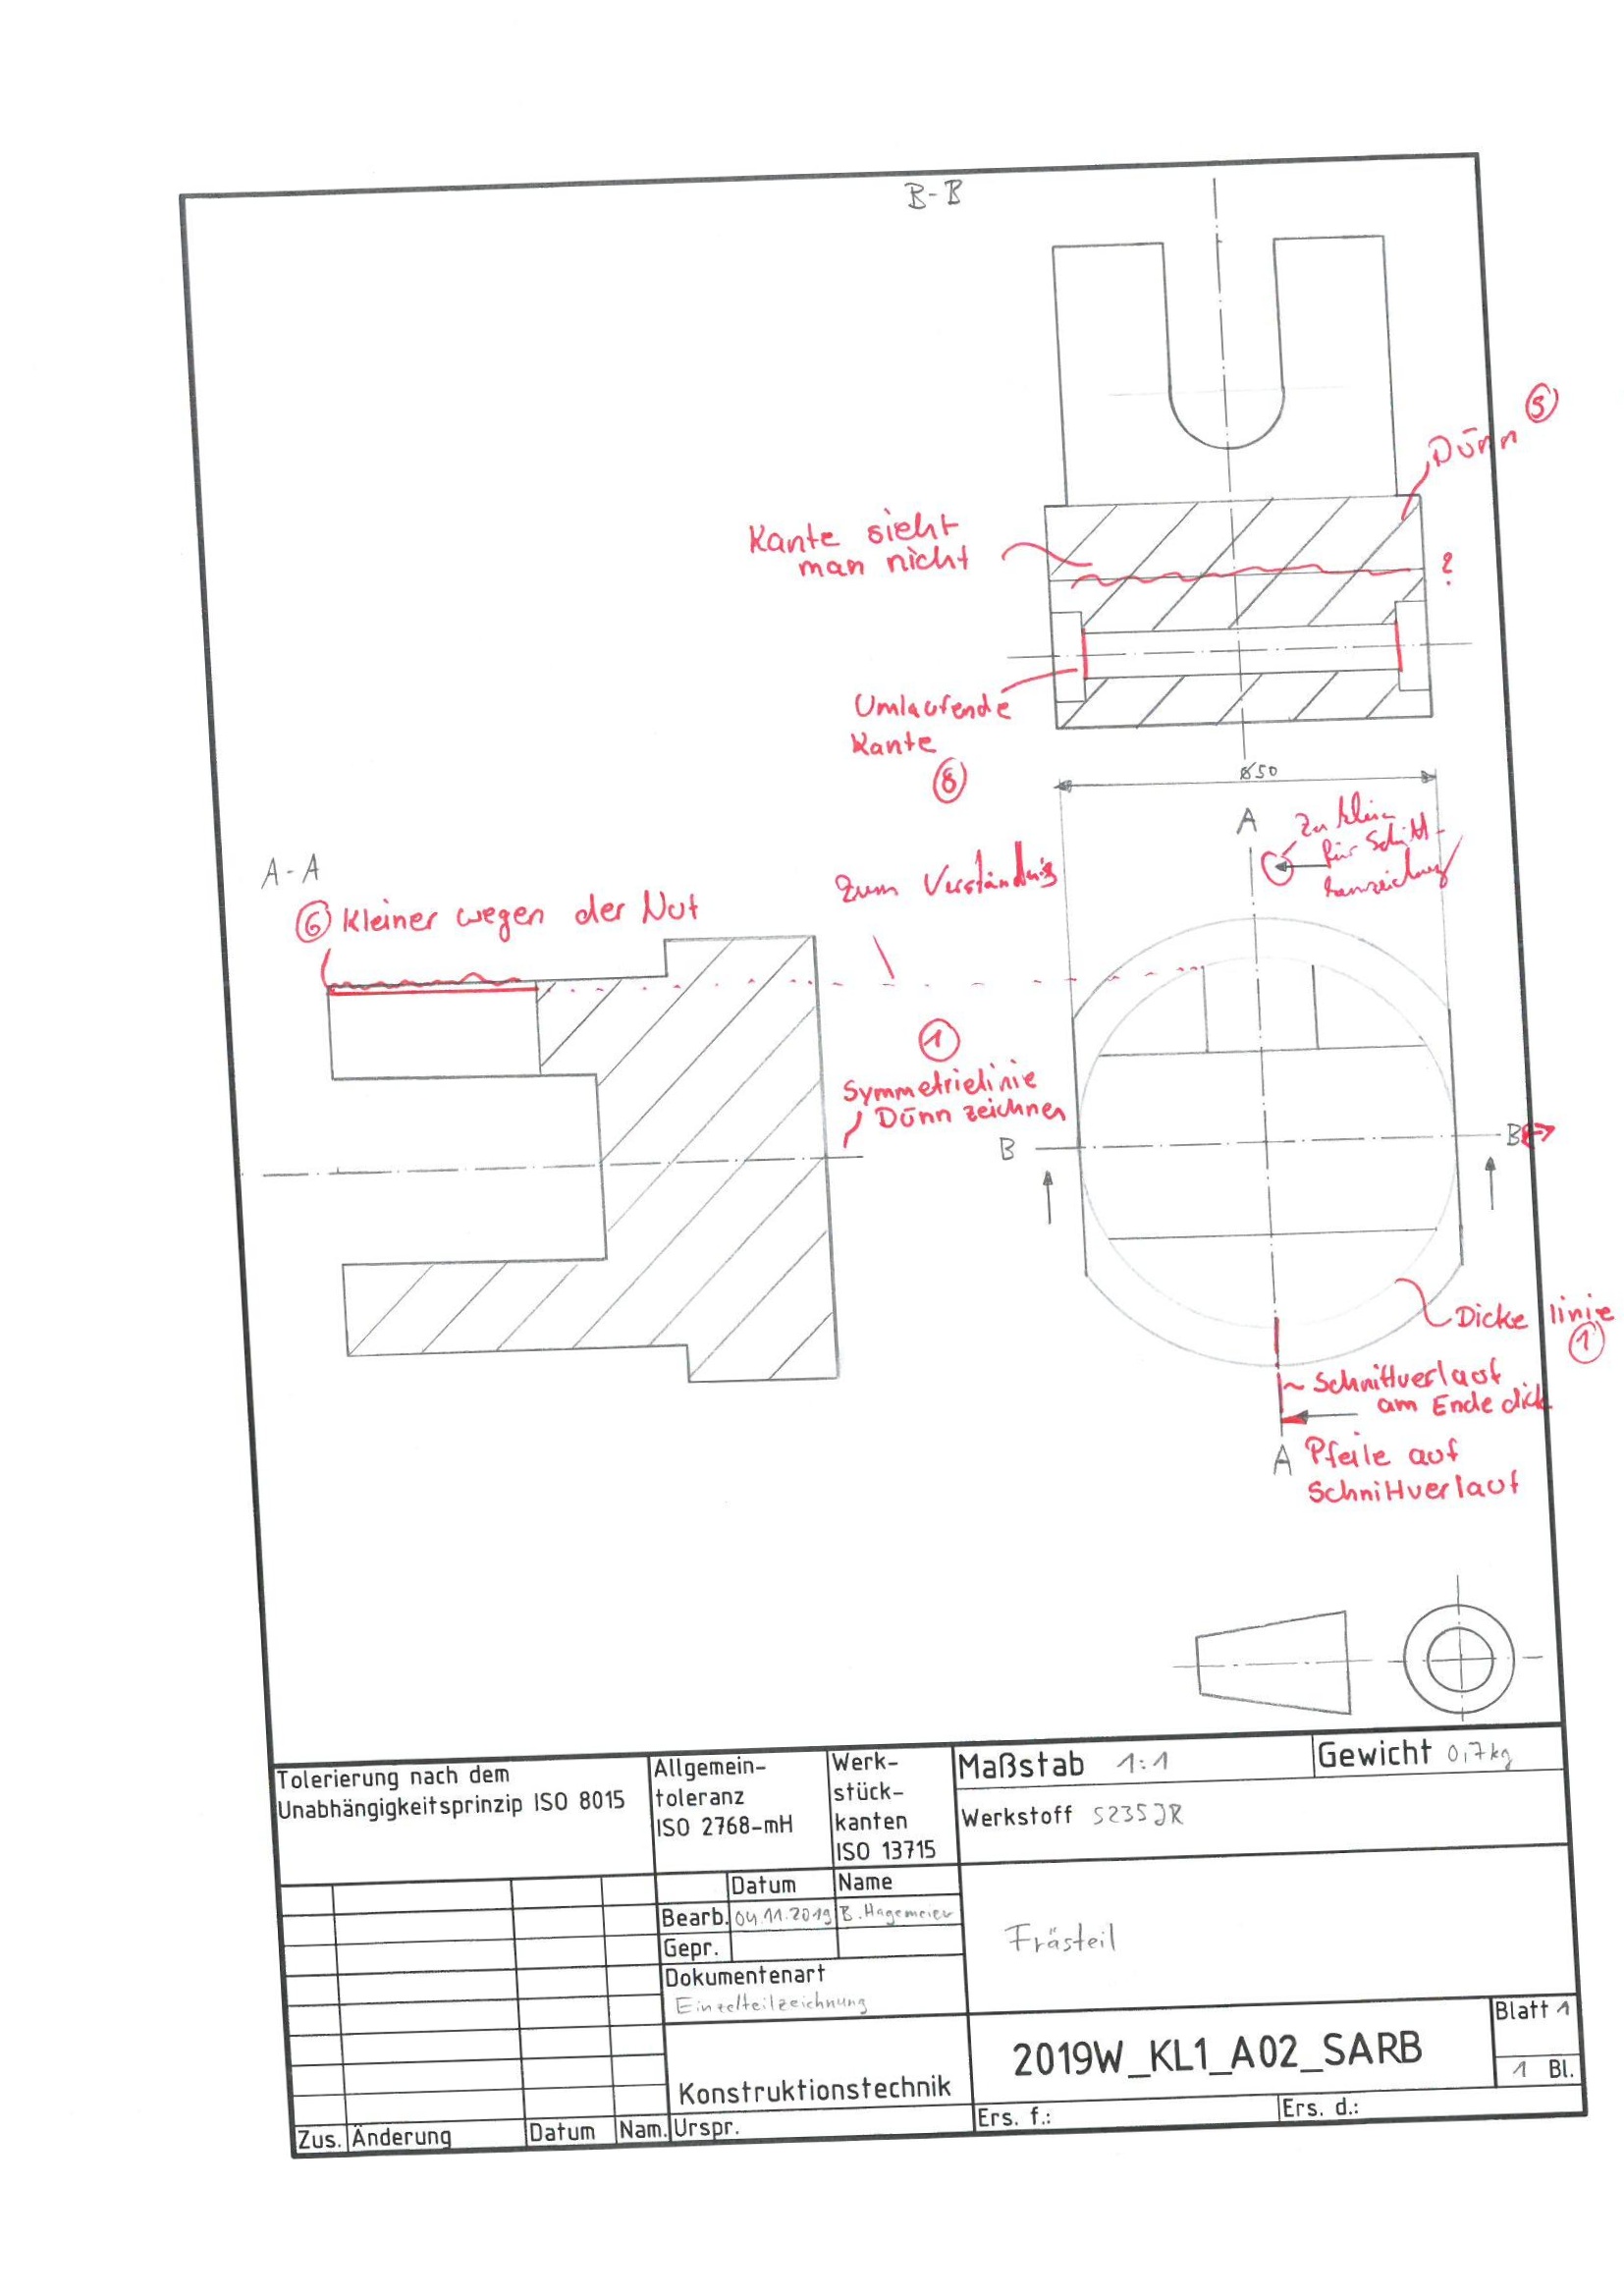 B-B
⑤
Dünn
Kante sieht
man nicht
?
Umlaufende
Kante
⑧
⌀50
A
Zu klein
für Schnitt-
kennzeichnung
A-A
zum Verständnis
⑥ Kleiner wegen der Nut
①
Symmetrielinie
Dünn zeichnen
B
B
Dicke linie
①
~ Schnittverlauf
am Ende dick
A
Pfeile auf
Schnittverlauf
Tolerierung nach dem
Unabhängigkeitsprinzip ISO 8015
Allgemein-
toleranz
ISO 2768-mH
Werk-
stück-
kanten
ISO 13715
Maßstab 1:1
Gewicht 0,7kg
Werkstoff S235JR
Datum Name
Bearb. 04.11.2019 B. Hagemeier
Gepr.
Dokumentenart
Einzelteilzeichnung
Frästeil
Konstruktionstechnik
2019W_KL1_A02_SARB
Blatt 1
1 Bl.
Zus. Änderung Datum Nam. Urspr.
Ers. f.:
Ers. d.: